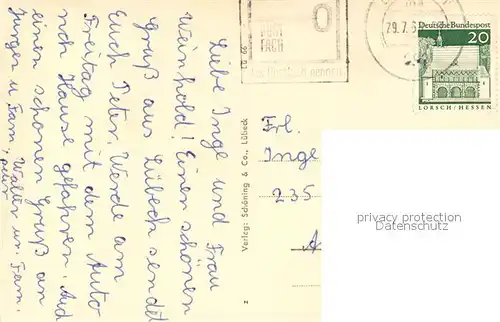 Liebe Inge und Frau
Weinhold! Einen schönen
Gruß aus Lübeck sendet
Euch Peter. Werde am
Freitag mit dem Auto
nach Hause gefahren. Auch
einen schönen Gruß an
Jürgen u. Fam., Walter un. Fam.,
Peter
Verlag: Schöning & Co., Lübeck
Frl.
Inge
235
POST
FACH
29.7.6
Deutsche Bundespost
20
LORSCH/HESSEN
privacy protection
Datenschutz